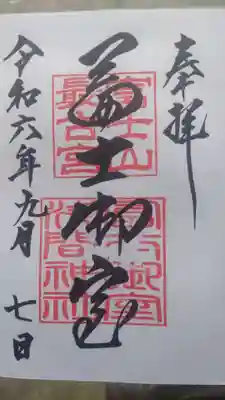 奉拝
冨士御室
富士山
最古宮
冨士御室
浅間神社
令和六年九月
七日